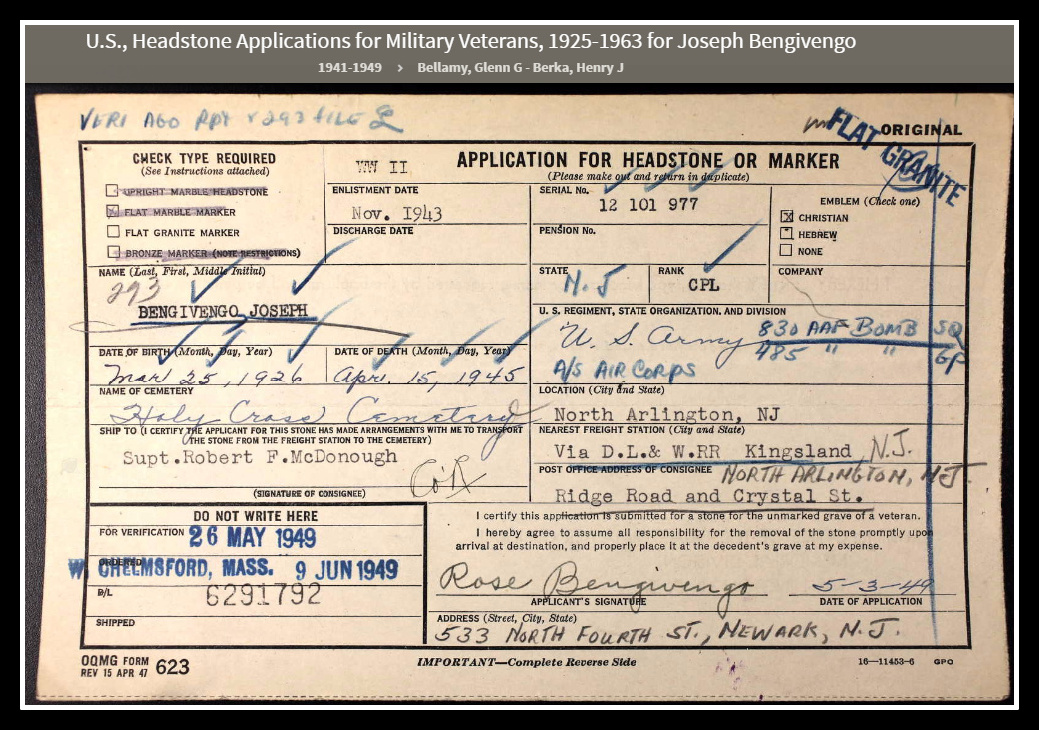 U.S., Headstone Applications for Military Veterans, 1925-1963 for Joseph Bengivengo
1941-1949 › Bellamy, Glenn G - Berka, Henry J
VERI AGO RPT & 293 FILE
FLAT GRANITE
ORIGINAL
CHECK TYPE REQUIRED
(See Instructions attached)
UPRIGHT MARBLE HEADSTONE
FLAT MARBLE MARKER
FLAT GRANITE MARKER
BRONZE MARKER (NOTE RESTRICTIONS)
WW II
ENLISTMENT DATE
Nov. 1943
DISCHARGE DATE
APPLICATION FOR HEADSTONE OR MARKER
(Please make out and return in duplicate)
SERIAL No.
12 101 977
PENSION No.
EMBLEM (Check one)
CHRISTIAN
HEBREW
NONE
NAME (Last, First, Middle Initial)
293
BENGIVENGO JOSEPH
STATE
N.J
RANK
CPL
COMPANY
U. S. REGIMENT, STATE ORGANIZATION, AND DIVISION
U. S. Army 830 AAF BOMB SQ
485 " " GP
A/S AIR CORPS
DATE OF BIRTH (Month, Day, Year)
Mar 25, 1926
DATE OF DEATH (Month, Day, Year)
Apr. 15, 1945
NAME OF CEMETERY
Holy Cross Cemetery
LOCATION (City and State)
North Arlington, NJ
SHIP TO (I CERTIFY THE APPLICANT FOR THIS STONE HAS MADE ARRANGEMENTS WITH ME TO TRANSPORT
THE STONE FROM THE FREIGHT STATION TO THE CEMETERY)
Supt.Robert F.McDonough
(SIGNATURE OF CONSIGNEE)
NEAREST FREIGHT STATION (City and State)
Via D.L.& W.RR Kingsland, N.J.
POST OFFICE ADDRESS OF CONSIGNEE NORTH ARLINGTON, N.J.
Ridge Road and Crystal St.
DO NOT WRITE HERE
FOR VERIFICATION 26 MAY 1949
ORDERED
W CHELMSFORD, MASS. 9 JUN 1949
B/L 6291792
SHIPPED
I certify this application is submitted for a stone for the unmarked grave of a veteran.
I hereby agree to assume all responsibility for the removal of the stone promptly upon
arrival at destination, and properly place it at the decedent's grave at my expense.
Rose Bengivengo 5-3-49
APPLICANT'S SIGNATURE DATE OF APPLICATION
ADDRESS (Street, City, State)
533 NORTH FOURTH ST., NEWARK, N.J.
OQMG FORM
REV 15 APR 47 623
IMPORTANT—Complete Reverse Side
16—11453-6 GPO